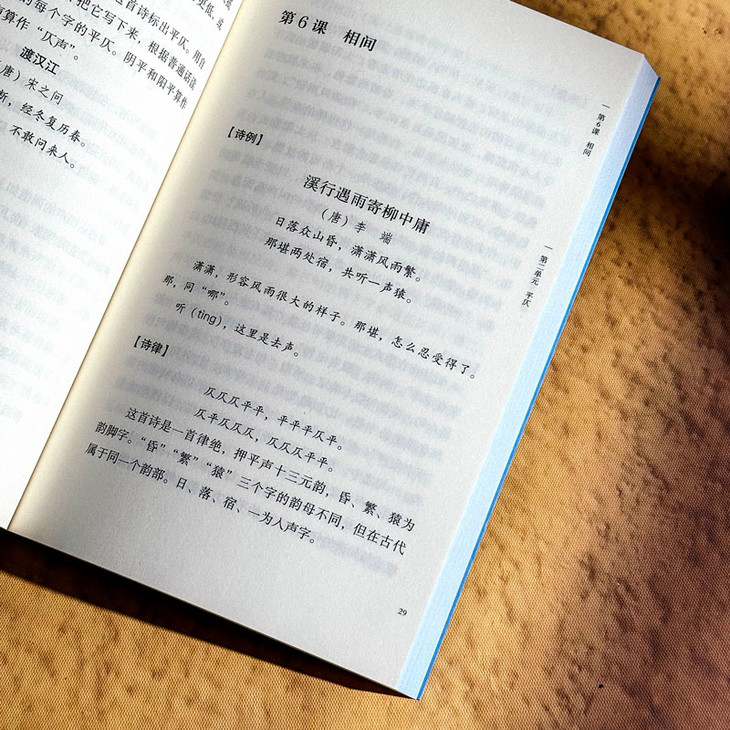 首诗标出平仄。用自
的每个字的平仄。
他它写下来，根据普通话读
算作“仄声”。阴平和阳平算作
渡汉江
唐）宋之问
断，经冬复历春。
不敢问来人。
第6课 相间
【诗例】
溪行遇雨寄柳中庸
（唐）李 端
日落众山昏，潇潇风雨繁。
那堪两处宿，共听一声猿。
潇潇，形容风雨很大的样子。那堪，怎么忍受得了。
那，同“哪”。
听（tìng），这里是去声。
【诗律】
仄仄仄平平，平平平仄平。
仄平仄仄仄，仄仄仄平平。
这首诗是一首律绝，押平声十三元韵，昏、繁、猿为
韵脚字。“昏”“繁”“猿”三个字的韵母不同，但在古代
属于同一个韵部。日、落、宿、一为入声字。
29
第6课 相间
第二单元 平仄